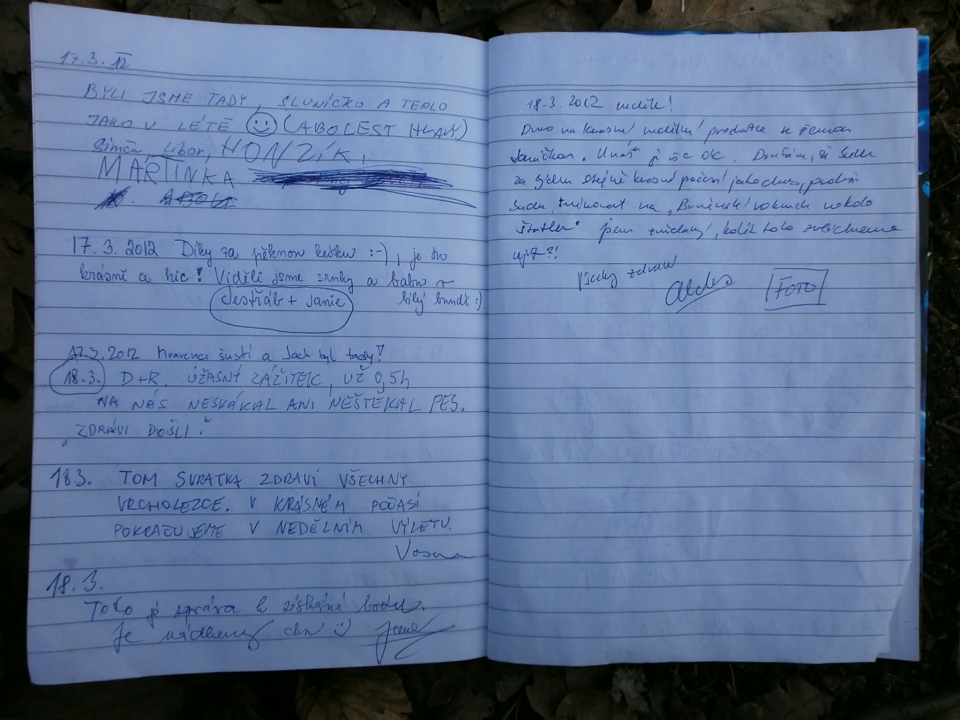 17.3.12
BYLI JSME TADY, SLUNÍČKO A TEPLO
JAKO V LÉTĚ (ABOLEST HLAVY)
Šimča, Libor, HONZÍK,
MARTINKA
17.3.2012 Díky za pěknou kešku :-), je tu
krásně a hic! Viděli jsme srnky a babu v
bílý bundě :)
Jestřáb + Janie
17.3.2012 Mravenci šustí a Jach byl tady!
18.3. D+R. ÚŽASNÝ ZÁŽITEK, UŽ 0,5h
NA NÁS NESKÁKAL ANI NEŠTĚKAL PES.
"ZDRÁVI DOŠLI."
18.3. TOM SVRATKA ZDRAVÍ VŠECHNY
VRCHOLEZCE. V KRÁSNÉM POČASÍ
POKRAČUJEME V NEDĚLNÍM VÝLETU.
18.3.
Toto je zpráva k získání bodu.
Je nádherný den :)
18.3.2012 neděle!
Dnes na krásné nedělní procházce se ženou
Janičkou. U nás je vše OK. Doufám, že bude
za týden stejně krásné počasí jako dnes, protože
budu trénovat na "Brněnské
jsem zvědavý, kolik toho
ujít?!
Všechny zdraví
FOTO